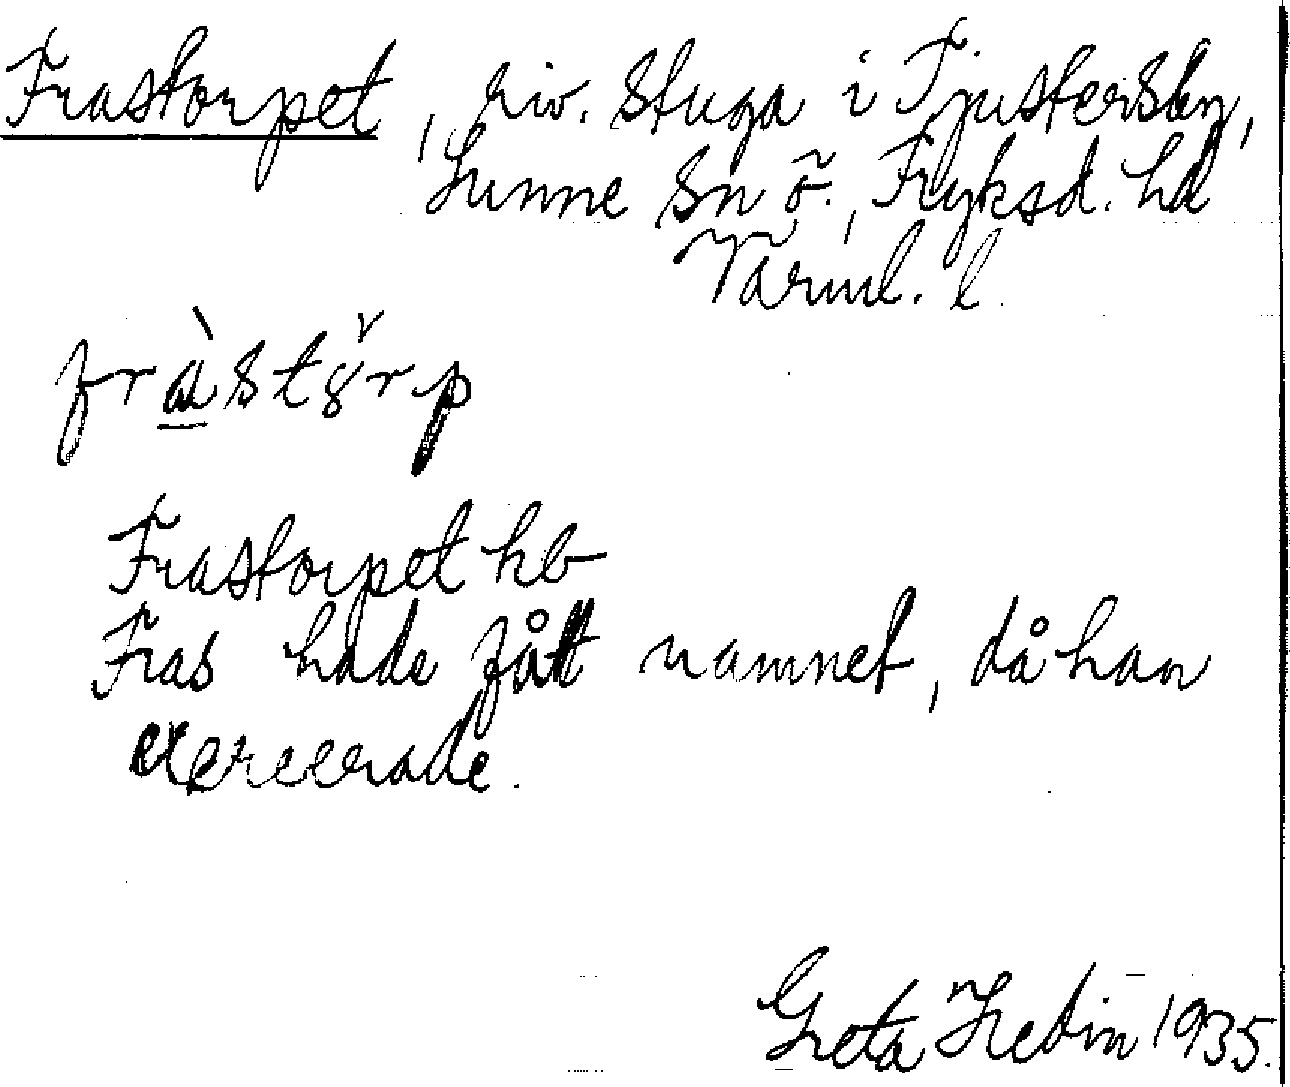 Frastorpet, riv. stuga i Tjustersby,
Sunne sn ö., Fryksd. hd
Värml. l.
fràstȣ̌rp
Frastorpet hb
Fras hade fått namnet, då han
exercerade.
Greta Hedin 1935.